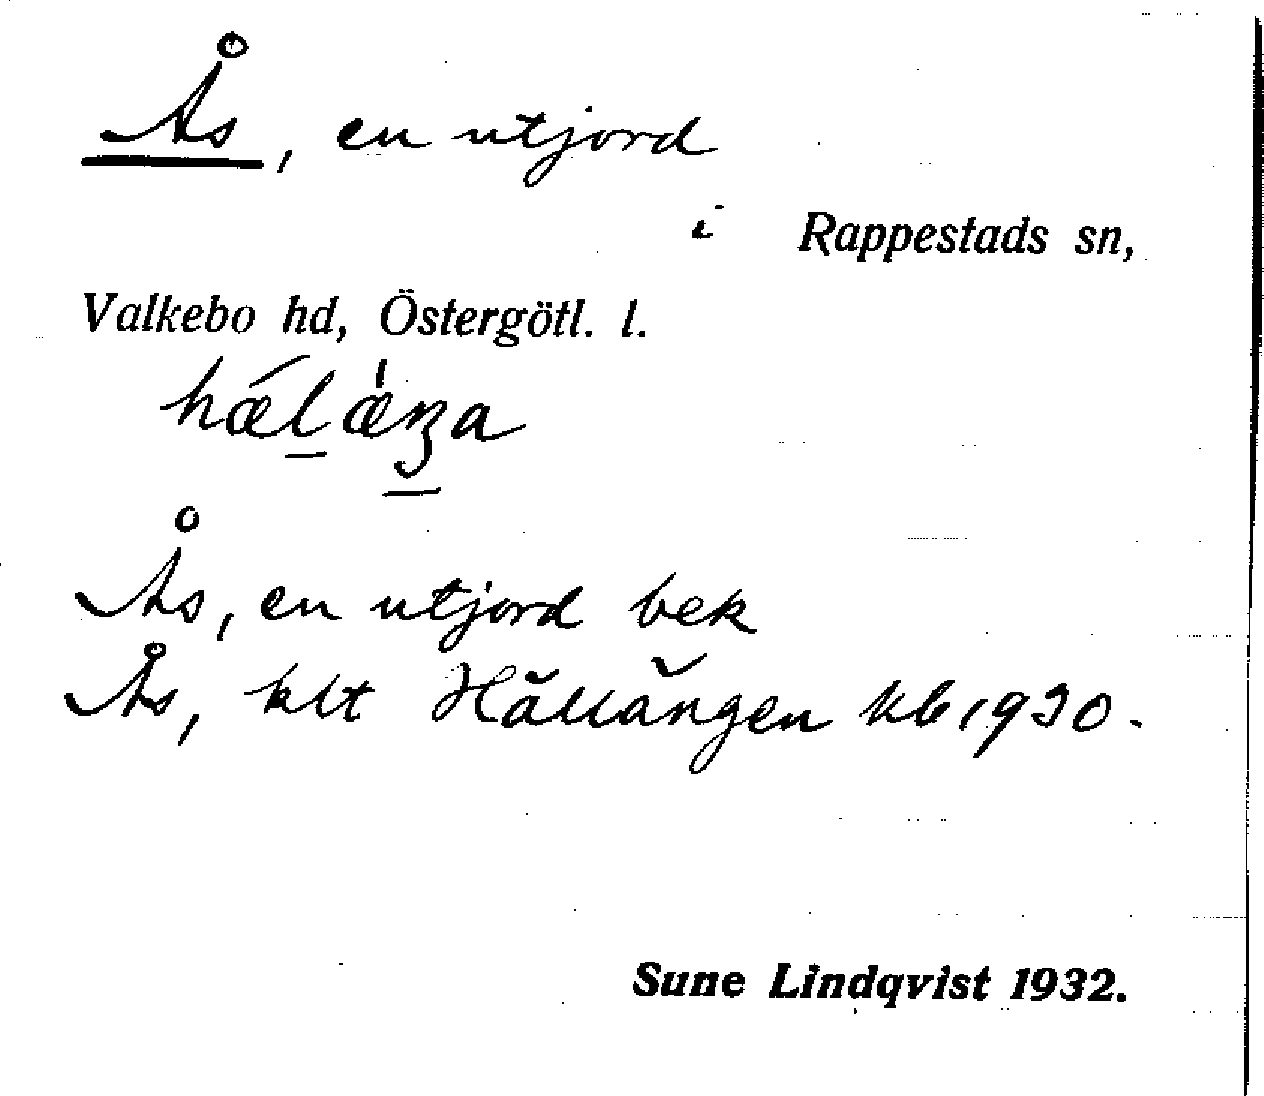 Ås, en utjord
i Rappestads sn,
Valkebo hd, Östergötl. l.
hǽlæ̍ŋa
Ås, en utjord bek
Ås, klt Hällängen kb 1930.
Sune Lindqvist 1932.